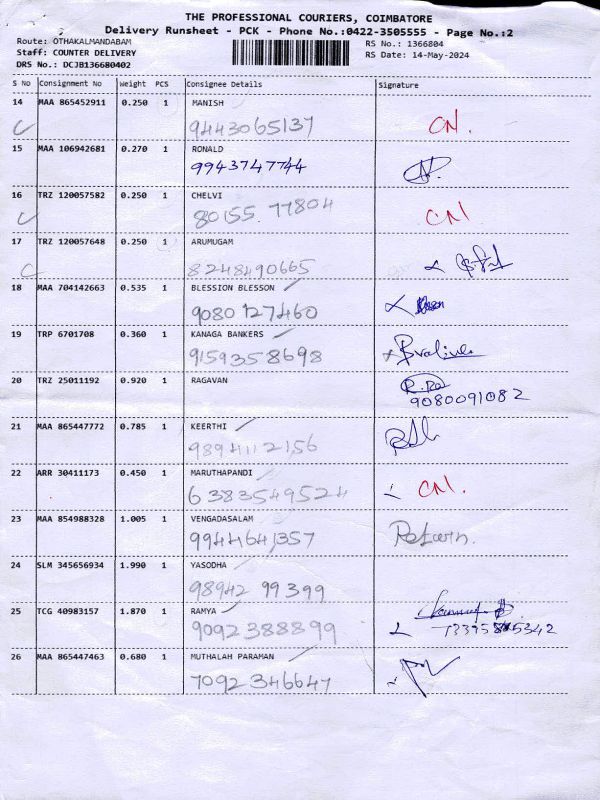 THE PROFESSIONAL COURIERS, COIMBATORE
Delivery Runsheet - PCK - Phone No.:0422-3505555 - Page No.:2
Route: OTHAKALMANDABAM RS No.: 1366804
Staff: COUNTER DELIVERY RS Date: 14-May-2024
DRS No.: DCJB136680402
S No Consignment No Weight PCS Consignee Details Signature
14 MAA 865452911 0.250 1 MANISH
9443065137 CN.
15 MAA 106942681 0.270 1 RONALD
9943747744
16 TRZ 120057582 0.250 1 CHELVI
80155.77804 CN
17 TRZ 120057648 0.250 1 ARUMUGAM
8248490665
18 MAA 704142663 0.535 1 BLESSION BLESSON
9080127460
19 TRP 6701708 0.360 1 KANAGA BANKERS
9159358698
20 TRZ 25011192 0.920 1 RAGAVAN
9080091082
21 MAA 865447772 0.785 1 KEERTHI
9894112156
22 ARR 30411173 0.450 1 MARUTHAPANDI
6383549524 CN.
23 MAA 854988328 1.005 1 VENGADASALAM
9944641357 Return.
24 SLM 345656934 1.990 1 YASODHA
98942 99399
25 TCG 40983157 1.870 1 RAMYA
9092388899
26 MAA 865447463 0.680 1 MUTHALAH PARAMAN
7092346647